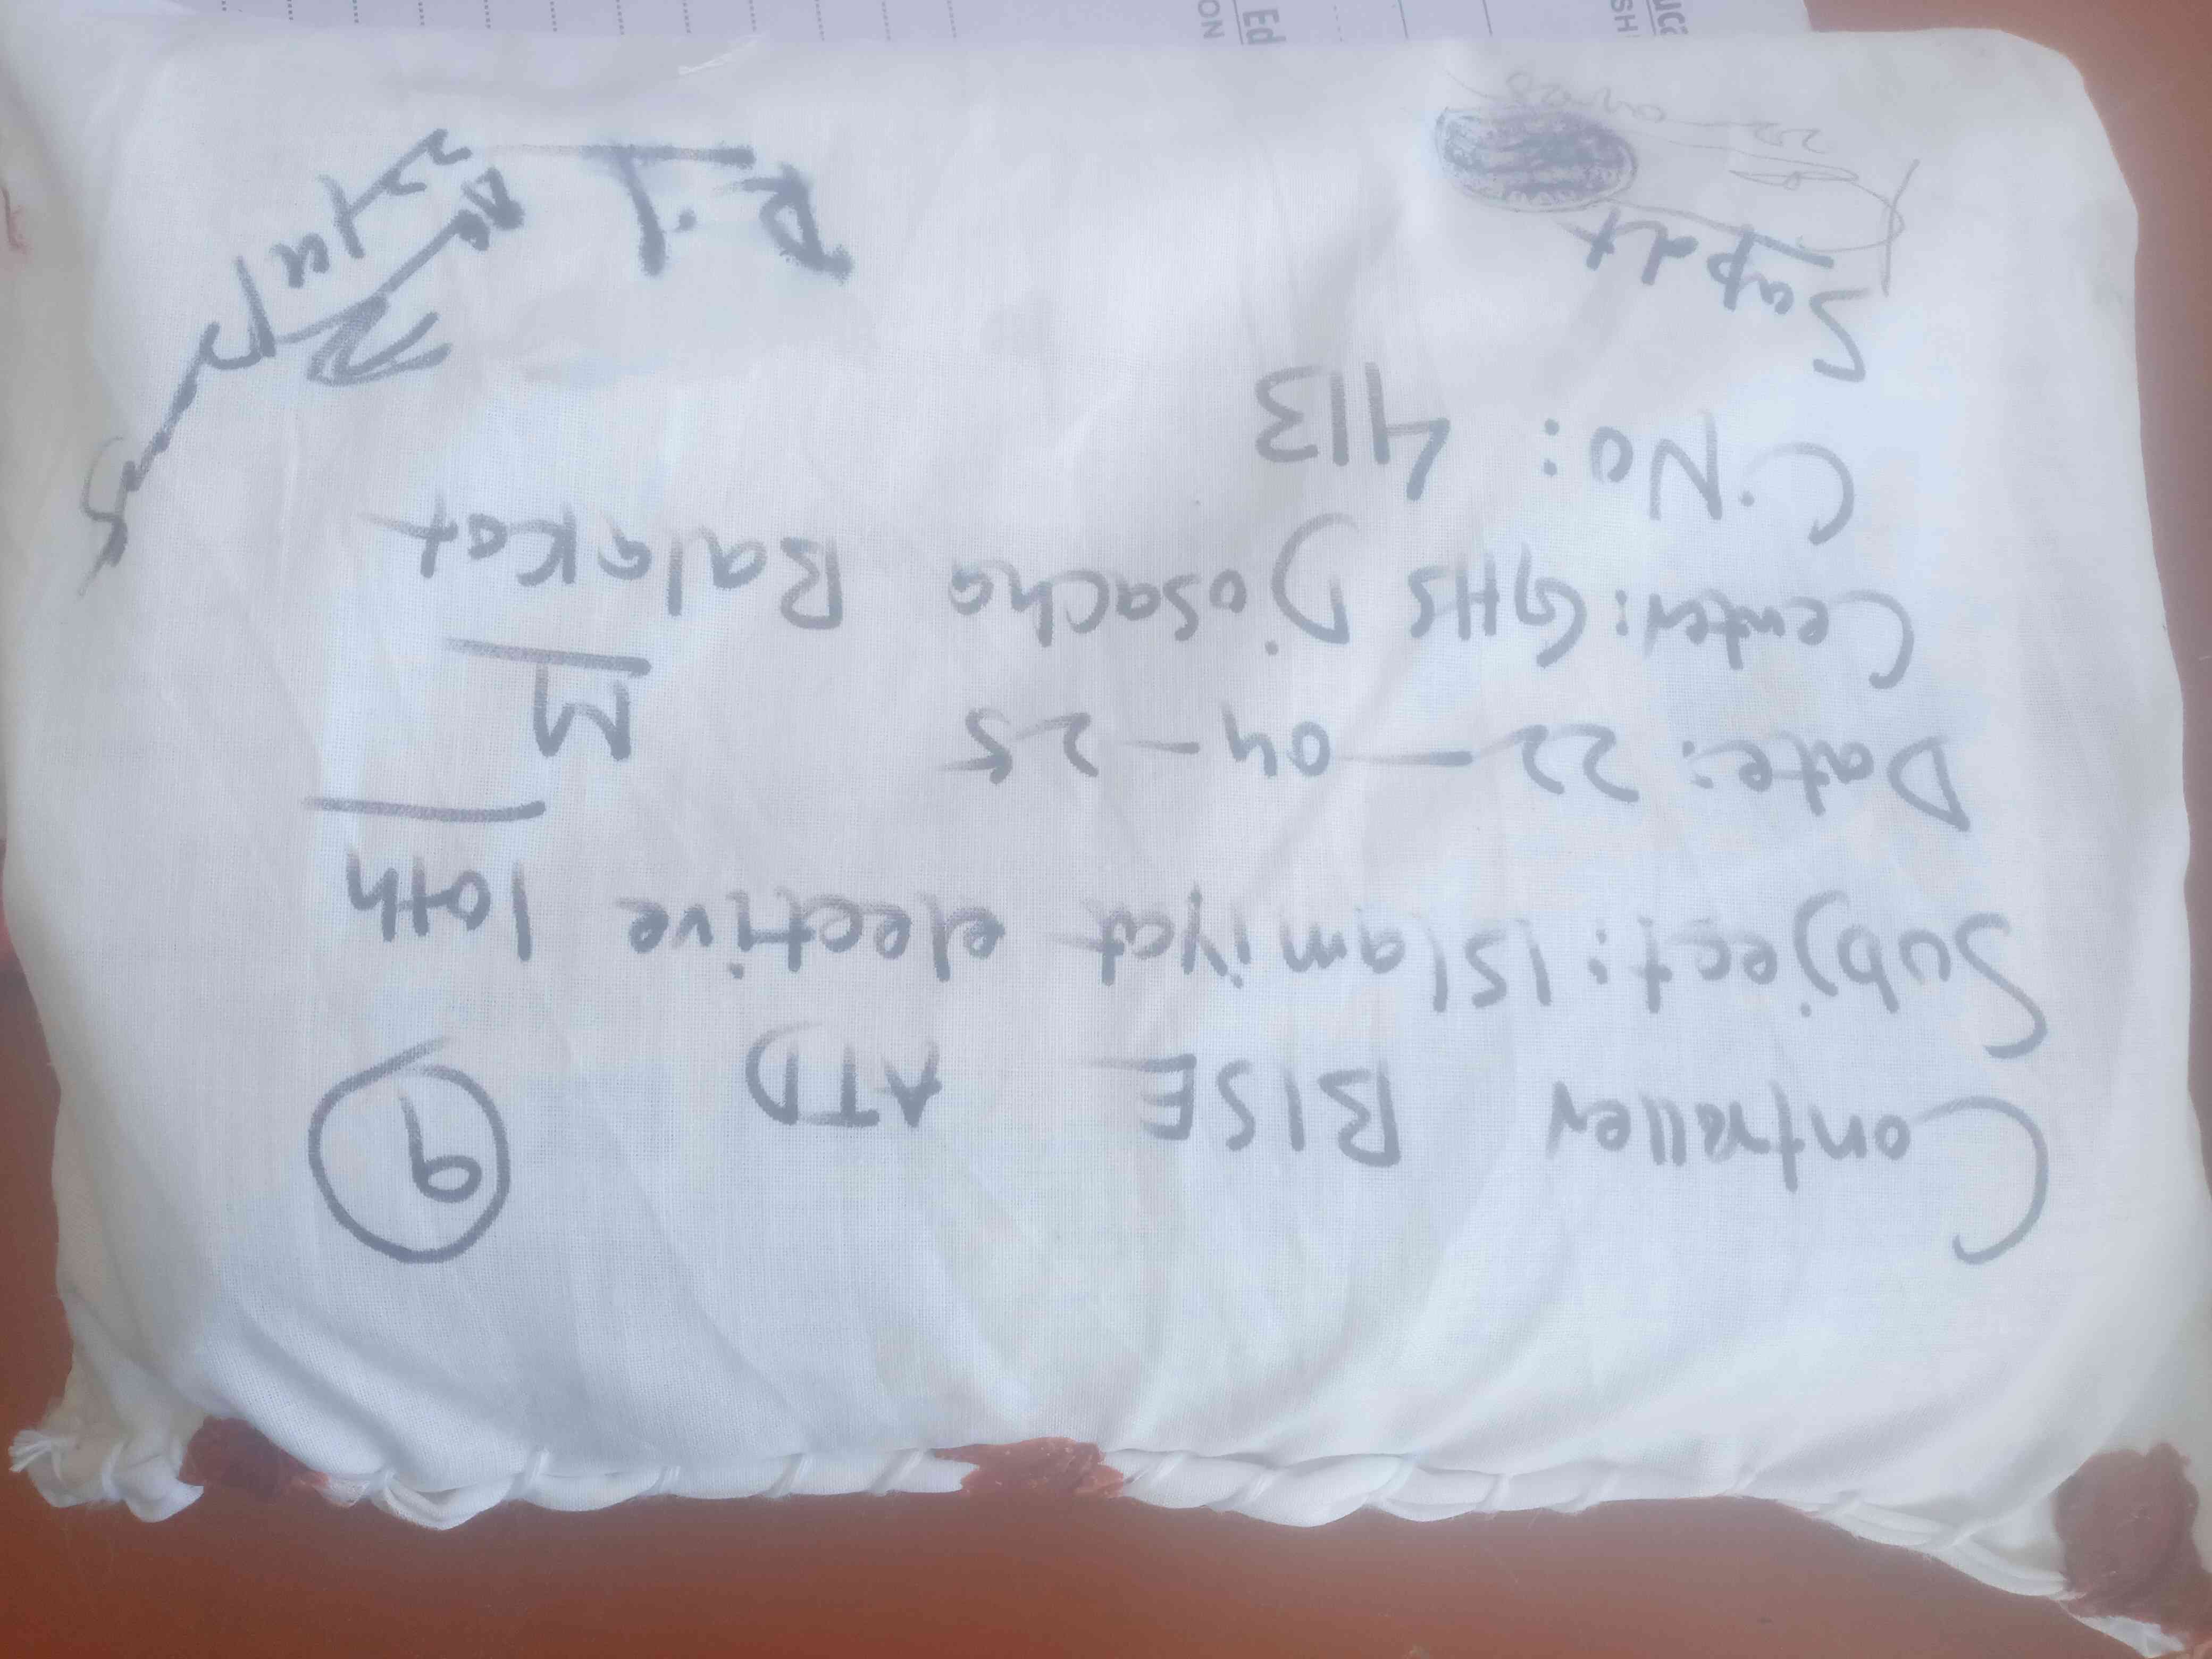 Controller BISE ATD 9
Subject: Islamiyat elective 10th
Date: 22-04-25 M
Center: GHS Disacha Balakot
C.No: 413
Supdt R.I
Ed
ON
SH